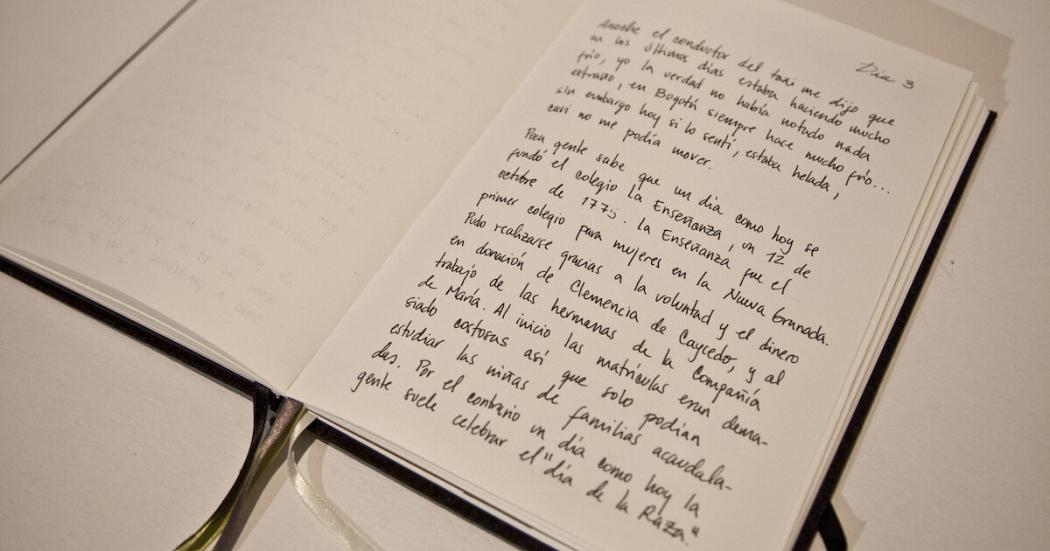 Día 3
Anoche el conductor del taxi me dijo que
en los últimos días estaba haciendo mucho
frío, yo la verdad no había notado nada
extraño, en Bogotá siempre hace mucho frío...
sin embargo hoy si lo sentí, estaba helada,
casi no me podía mover.
Poca gente sabe que un día como hoy se
fundó el colegio La Enseñanza, un 12 de
octubre de 1775. La Enseñanza fue el
primer colegio para mujeres en la Nueva Granada.
Pudo realizarse gracias a la voluntad y el dinero
en donación de Clemencia de Caycedo, y al
trabajo de las hermanas de la Compañía
de María. Al inicio las matrículas eran dema-
siado costosas así que solo podían
estudiar las niñas de familias acaudala-
das. Por el contrario un día como hoy la
gente suele celebrar el "día de la Raza."